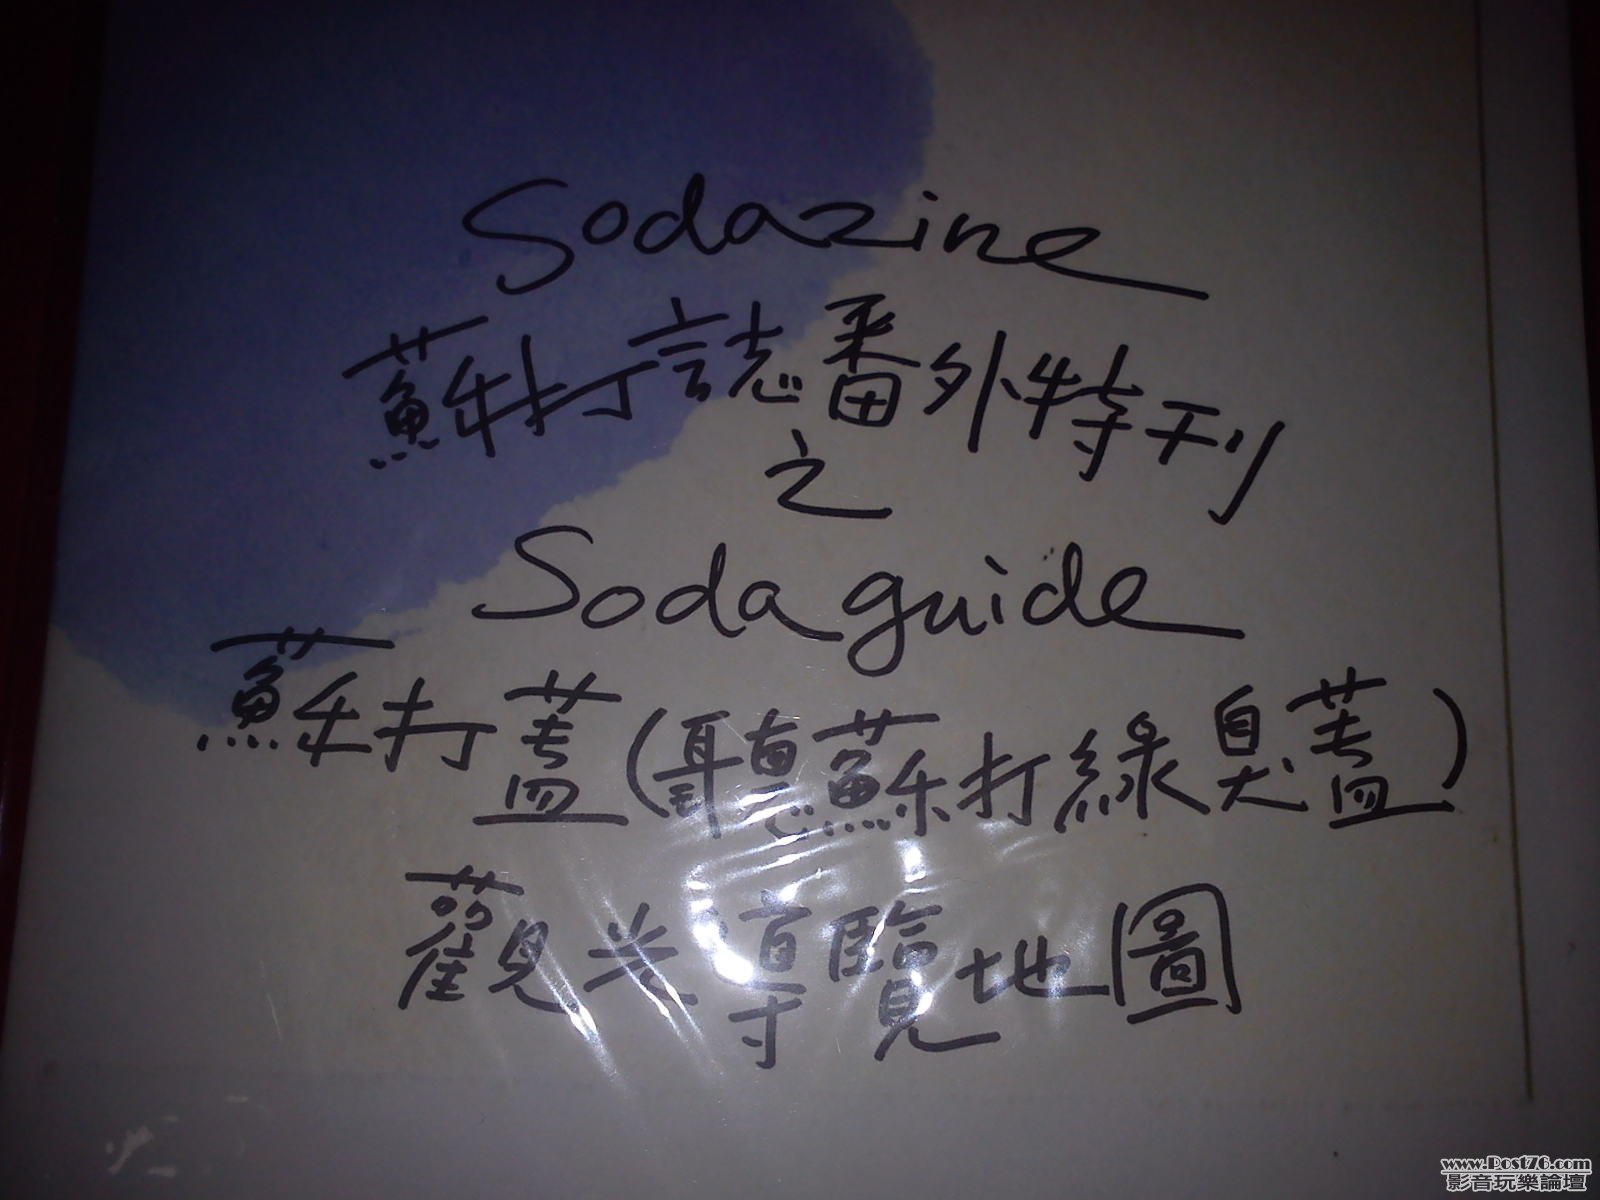 Sodazine
蘇打誌番外特刊
之
Soda guide
蘇打蓋(聽蘇打綠臭蓋)
觀光導覽地圖
www.Post76.com
影音玩樂論壇